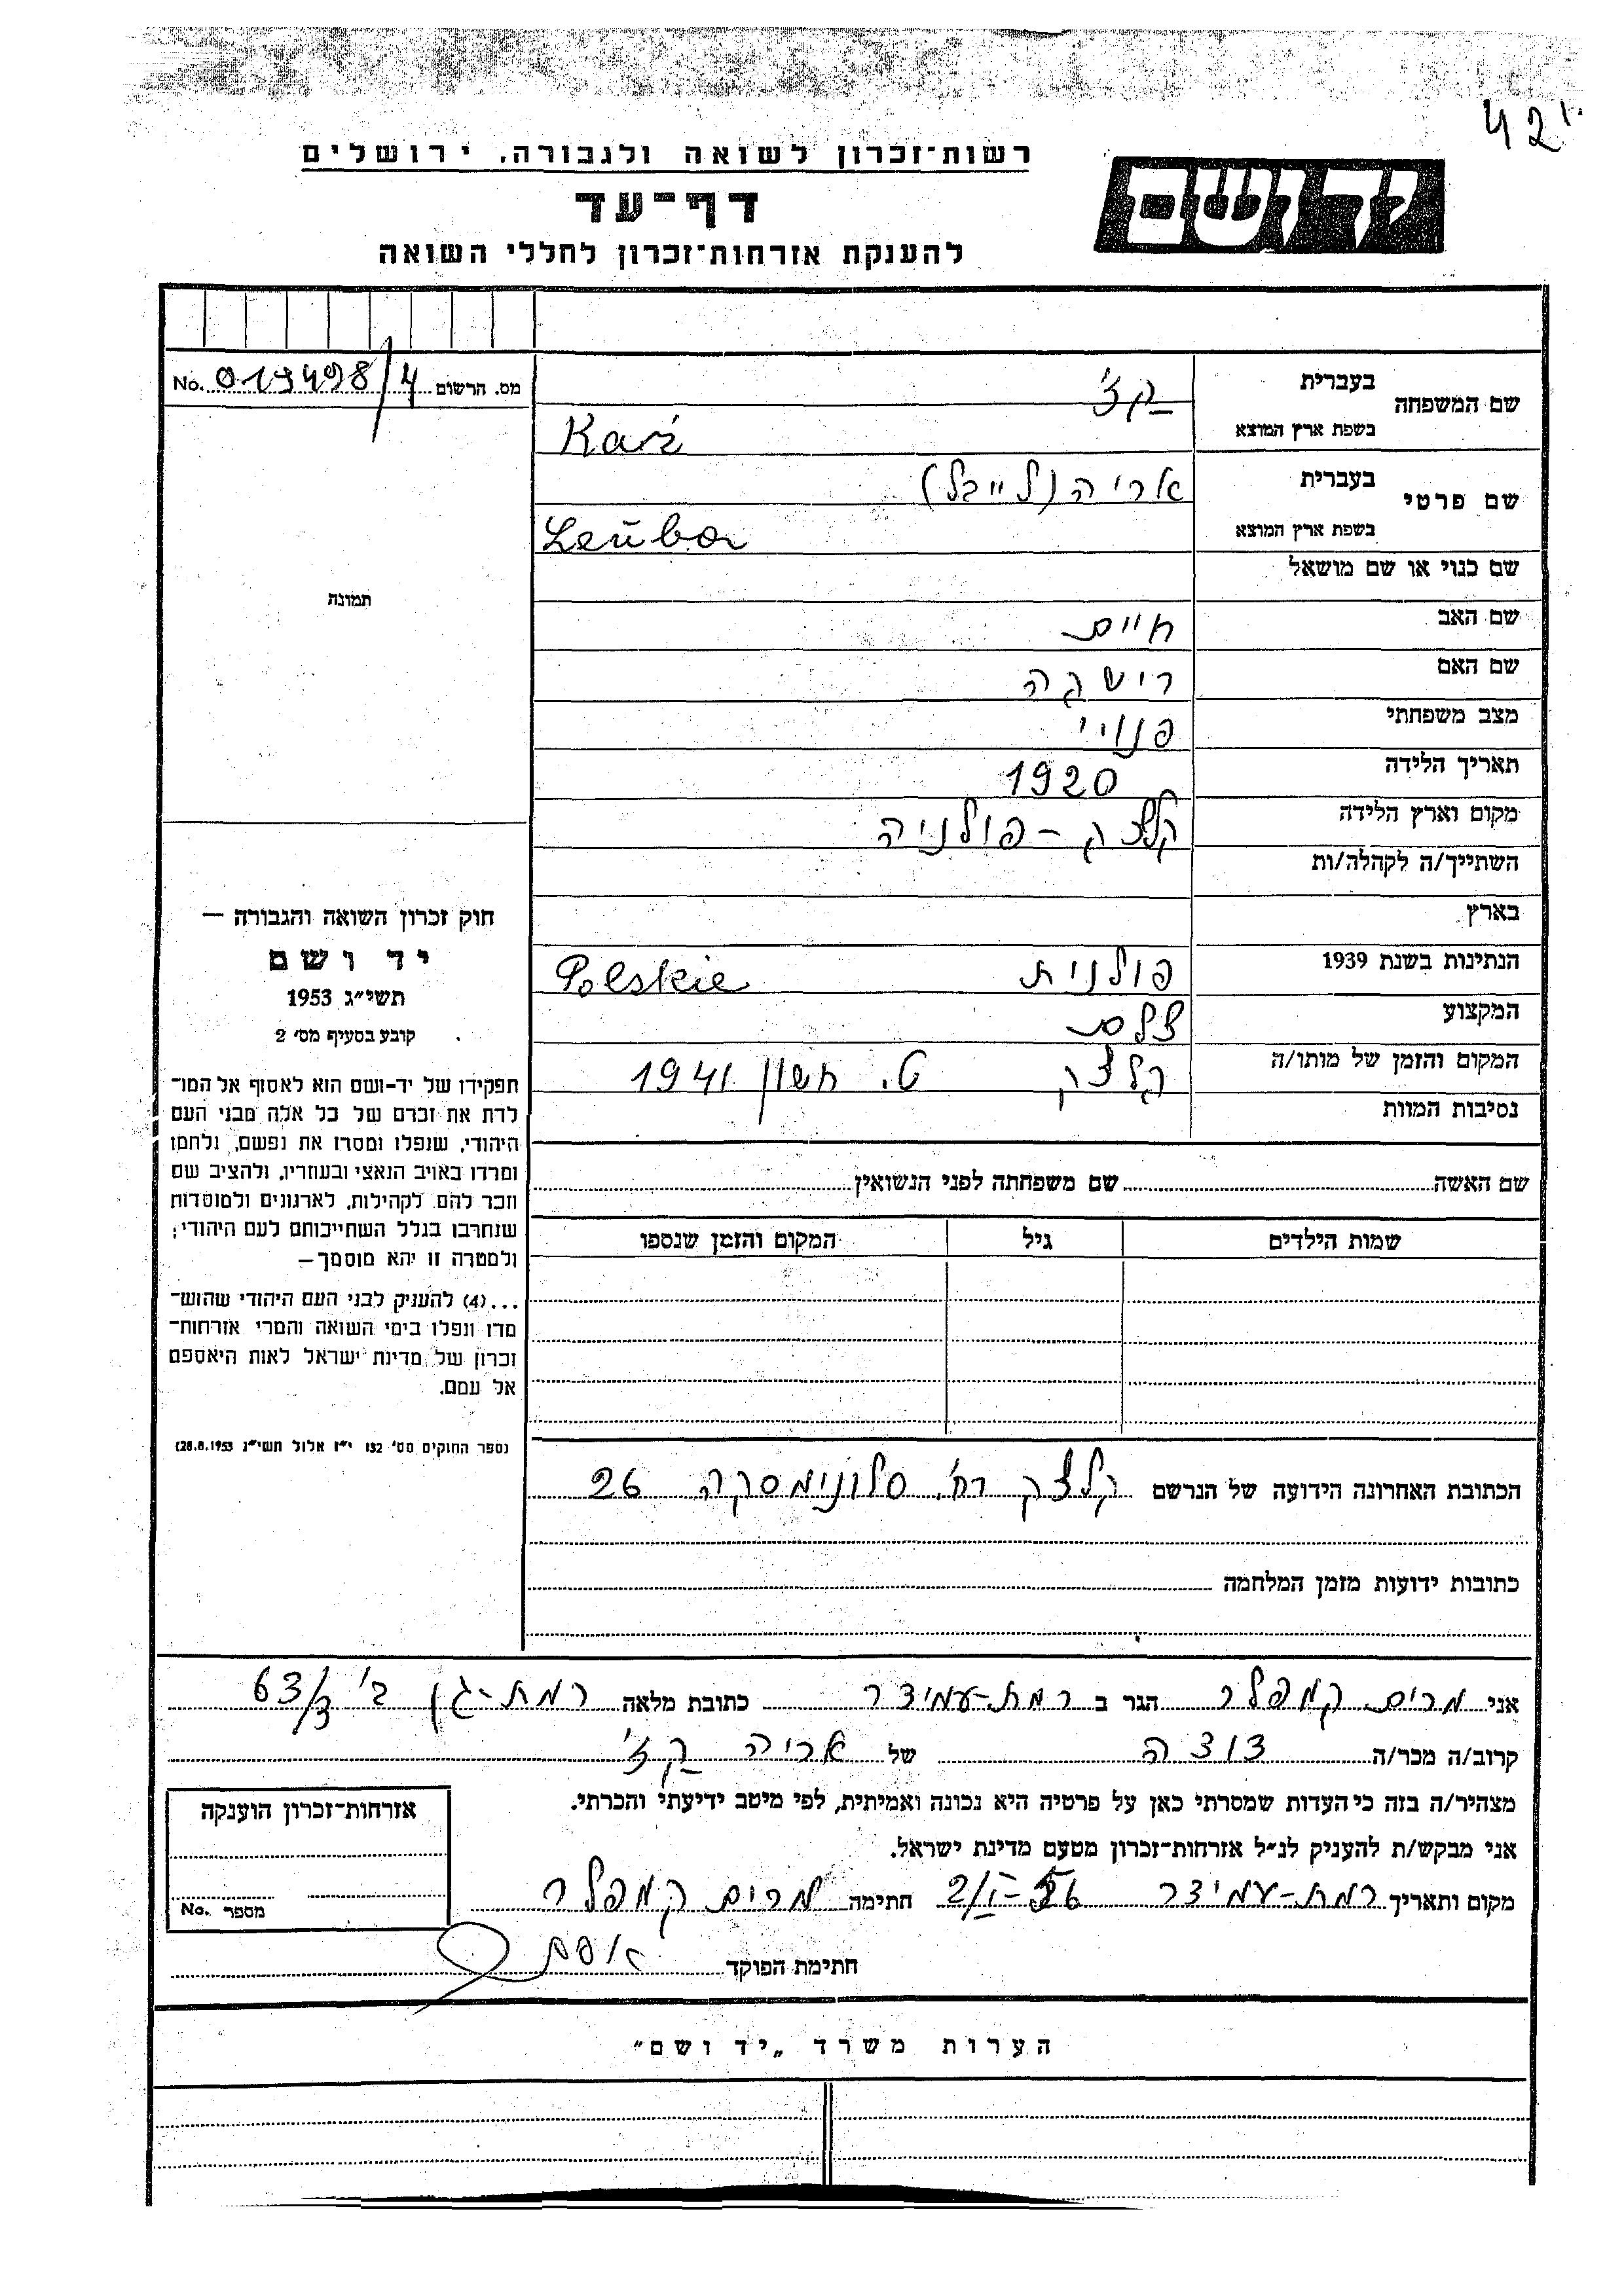 42
רשות־זכרון לשואה ולגבורה, ירושלים
יד ושם
דף־עד
להענקת אזרחות־זכרון לחללי השואה
שם המשפחה
בעברית
קז'
בשפת ארץ המוצא
Karź
מס. הרשום 019498/4 No.
שם פרטי
בעברית
אריה (לייבל)
בשפת ארץ המוצא
תמונה
שם כנוי או שם מושאל
שם האב חיים
שם האם
מצב משפחתי פנויי
תאריך הלידה 1920
מקום וארץ הלידה קלצק – פולניה
השתייך/ה לקהלה/ות
בארץ
הנתינות בשנת 1939 פולנית Polskie
המקצוע צלם
המקום והזמן של מותו/ה קלצק ט. חשון 1941
נסיבות המוות
חוק זכרון השואה והגבורה —
יד ושם
תשי״ג 1953
קובע בסעיף מס׳ 2
תפקידו של יד-ושם הוא לאסוף אל המו־
לדת את זכרם של כל אלה מבני העם
היהודי, שנפלו ומסרו את נפשם, נלחמו
ומרדו באויב הנאצי ובעוזריו, ולהציב שם
וזכר להם לקהילות, לארגונים ולמוסדות
שנחרבו בגלל השתייכותם לעם היהודי;
ולמטרה זו יהא מוסמך—
...(4) להעניק לבני העם היהודי שהוש־
מדו ונפלו בימי השואה והמרי אזרחות־
זכרון של מדינת ישראל לאות היאספם
אל עמם.
נספר החוקים מס׳ 132 י״ז אלול תשי״ג 28.8.1953)
שם האשה שם משפחתה לפני הנשואין
שמות הילדים גיל המקום והזמן שנספו
הכתובת האחרונה הידועה של הנרשם קלצק רח'. סלונימסקה 26
כתובות ידועות מזמן המלחמה
אני מרים קמפלר הגר ב רמת-עמידר כתובת מלאה רמת-גן ב' 63/3
קרוב/ה מכר/ה דודה של אריה קז'
מצהיר/ה בזה כי העדות שמסרתי כאן על פרטיה היא נכונה ואמיתית, לפי מיטב ידיעתי והכרתי.
אני מבקש/ת להעניק לנ״ל אזרחות־זכרון מטעם מדינת ישראל.
מקום ותאריך רמת-עמידר 2/I-56 חתימה מרים קמפלר
חתימת הפוקד
אזרחות־זכרון הוענקה
מספר No.
הערות משרד „יד ושם״